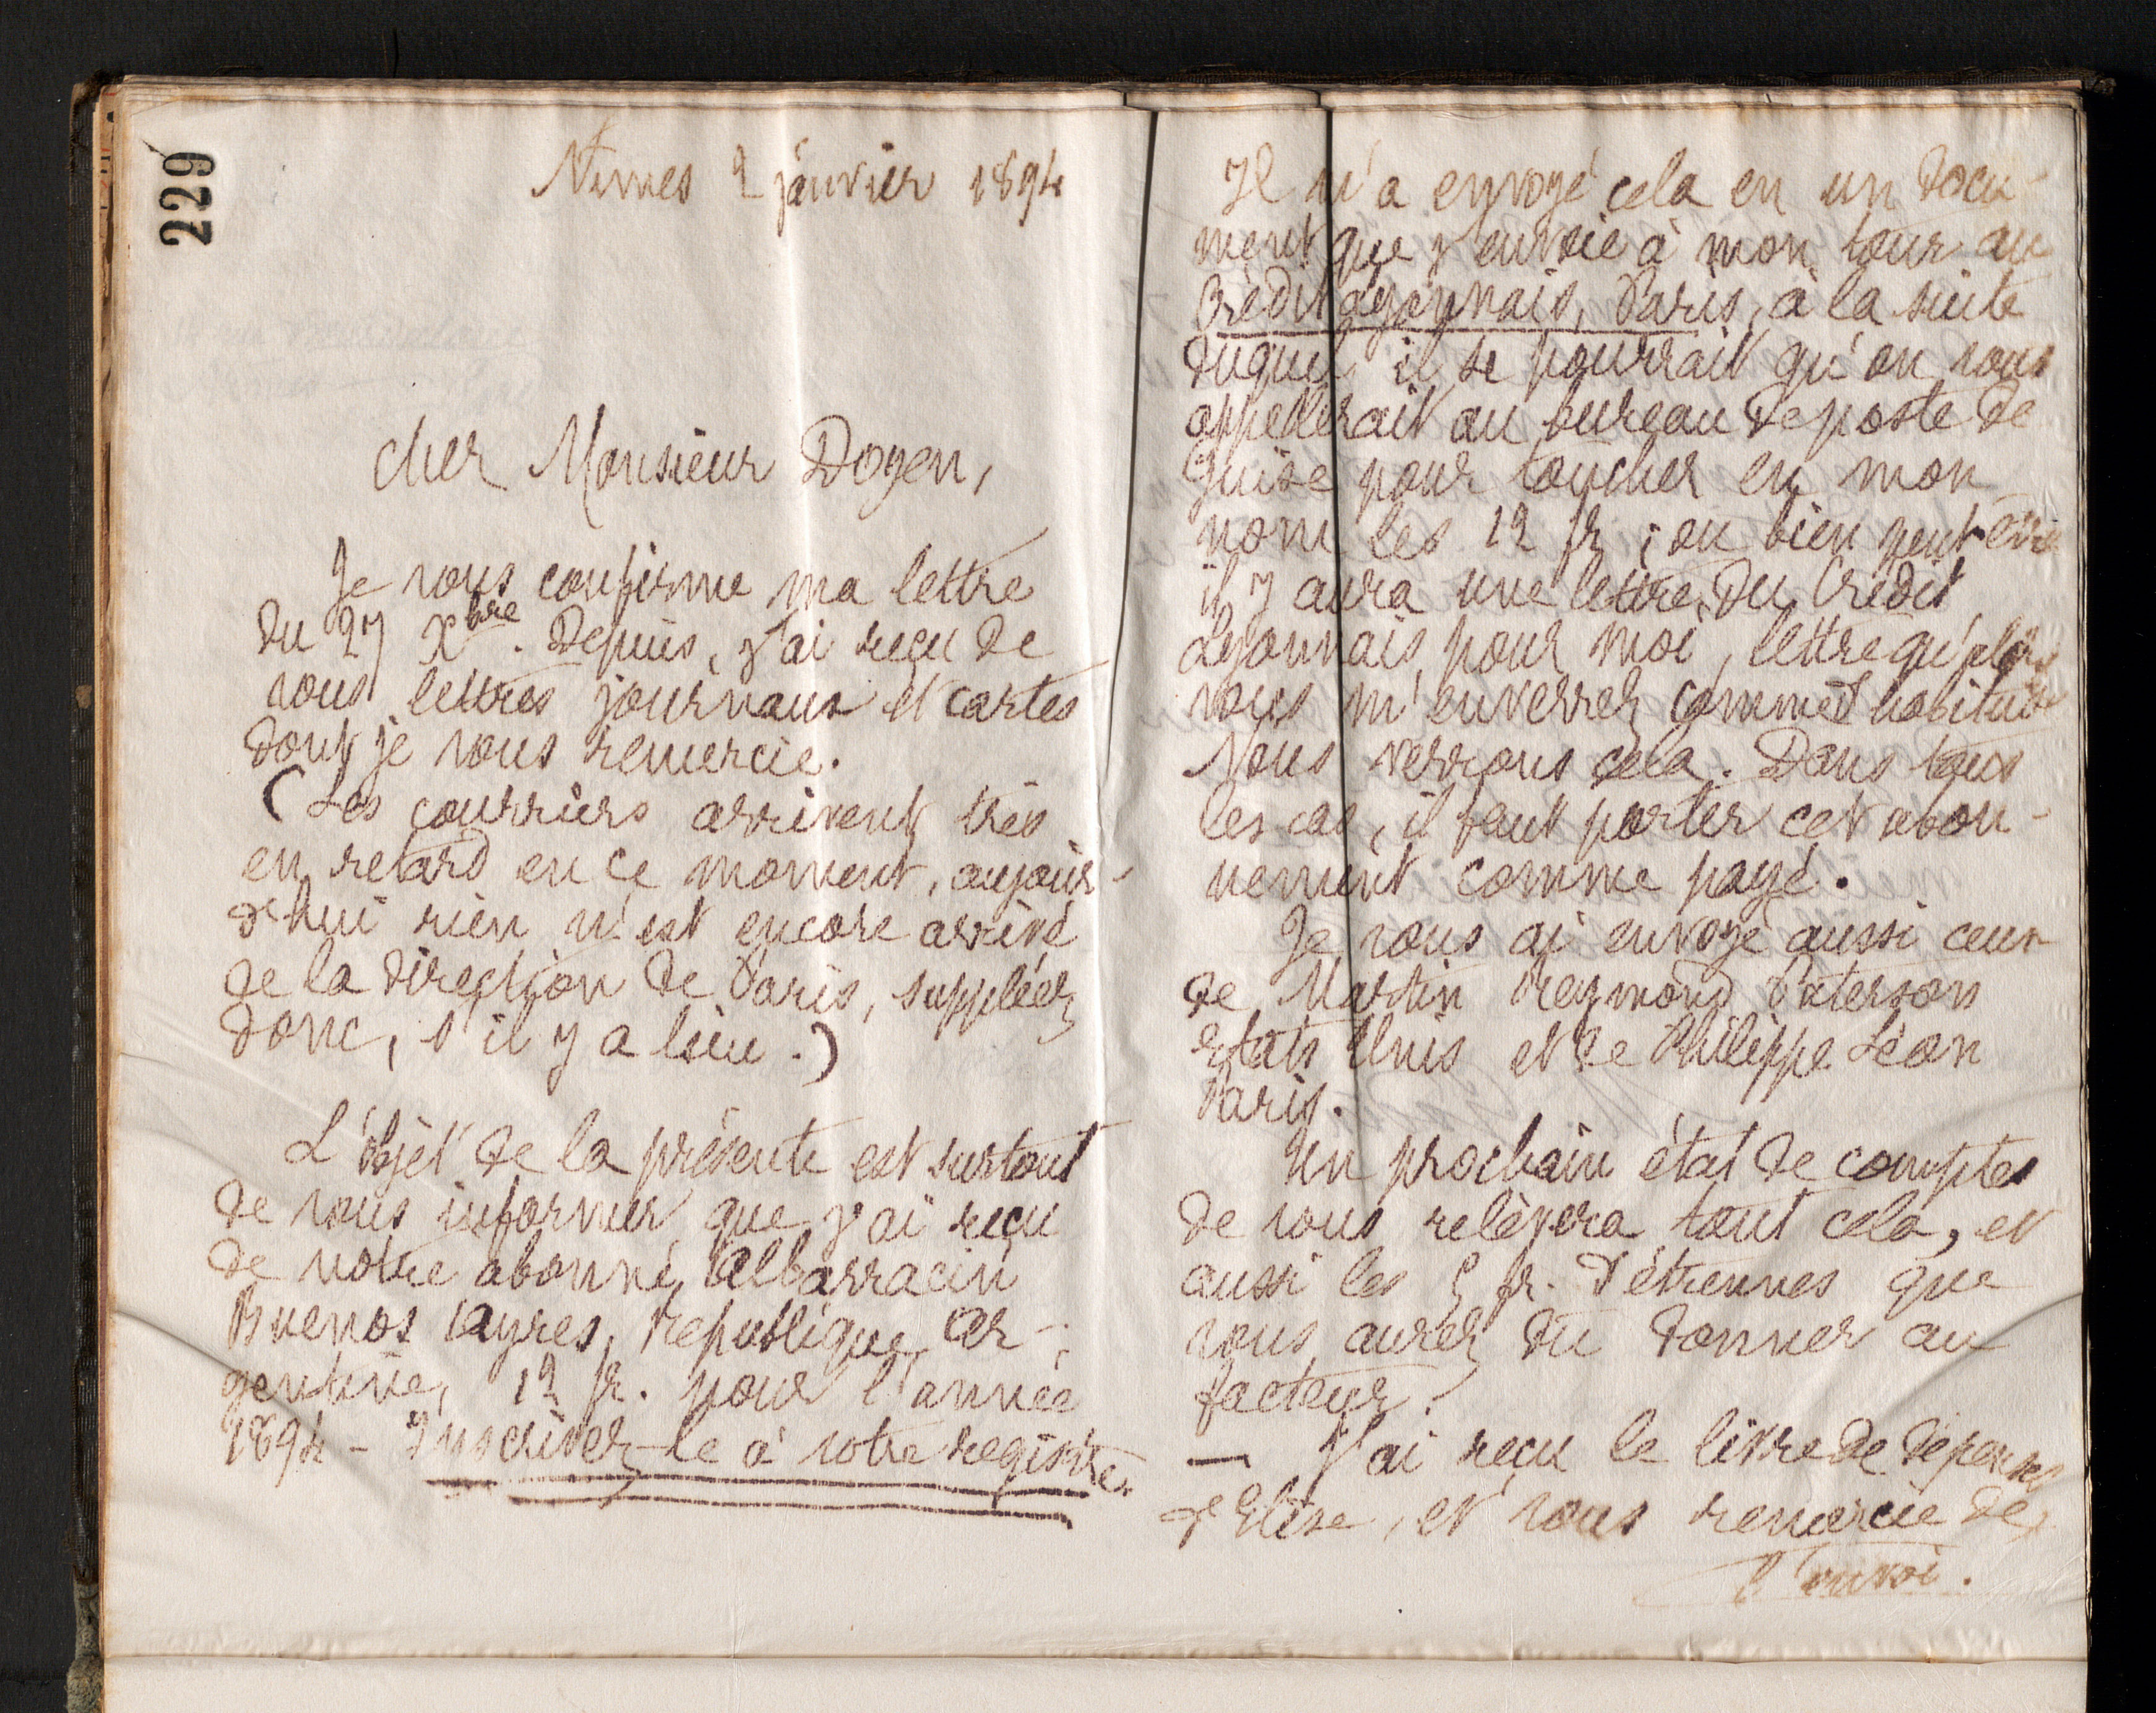 229
Nimes 2 janvier 1894
Cher Monsieur Doyen,
Je vous confirme ma lettre
du 27 Xbre. Depuis, j'ai reçu de
vous lettres journaux et cartes
dont je vous remercie.
(Les courriers arrivent très
en retard en ce moment, aujour-
d'hui rien n'est encore arrivé
de la direction de Paris, suppléez
donc, s'il y a lieu.)
L'objet de la présente est surtout
de vous informer que j'ai reçu
de notre abonné, Albarracin
Buenos Ayres, République Ar-
gentine, 12 fr. pour l'année
1894 - Inscrivez-le à votre registre.
Il m'a envoyé cela en un docu-
ment que j'envoie à mon tour au
Crédit Lyonnais, Paris, à la suite
duquel il se pourrait qu'on vous
appellerait au bureau de poste de
Guise pour toucher en mon
nom les 12 fr ; ou bien peut-être
il y aura une lettre du Crédit
Lyonnais pour moi, lettre qu'alors
vous m'enverrez comme d'habitude
Nous verrons cela. Dans tous
les cas, il faut porter cet abon-
nement comme payé.
Je vous ai envoyé aussi ceux
de Martin Reymond Paterson
Etats Unis et de Philippe Léon
Paris.
Un prochain état de comptes
de vous relèvera tout cela, et
aussi les 5 fr. d'étrennes que
vous aurez dû donner au
facteur.
— J'ai reçu le livre de dépenses
d'Elise, et vous remercie de
l'envoi.